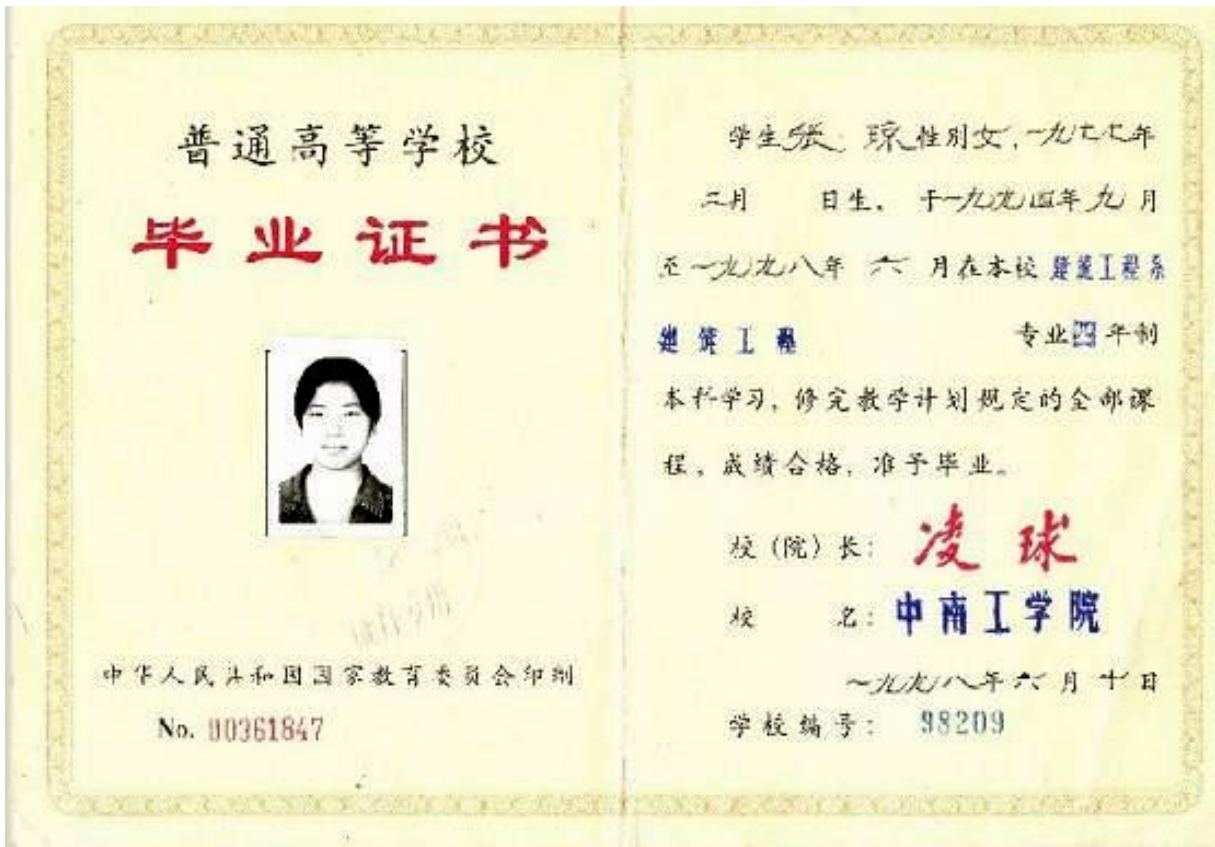 普通高等学校
毕业证书
中华人民共和国国家教育委员会印制
No. 00361847
学生张 琼性别女,一九七七年
三月 日生,于一九九四年九月
至一九九八年 六 月在本校 建筑工程系
建筑工程 专业四年制
本科学习,修完教学计划规定的全部课
程,成绩合格,准予毕业。
校(院)长: 凌球
校 名: 中南工学院
一九九八年六月十日
学校编号: 98209